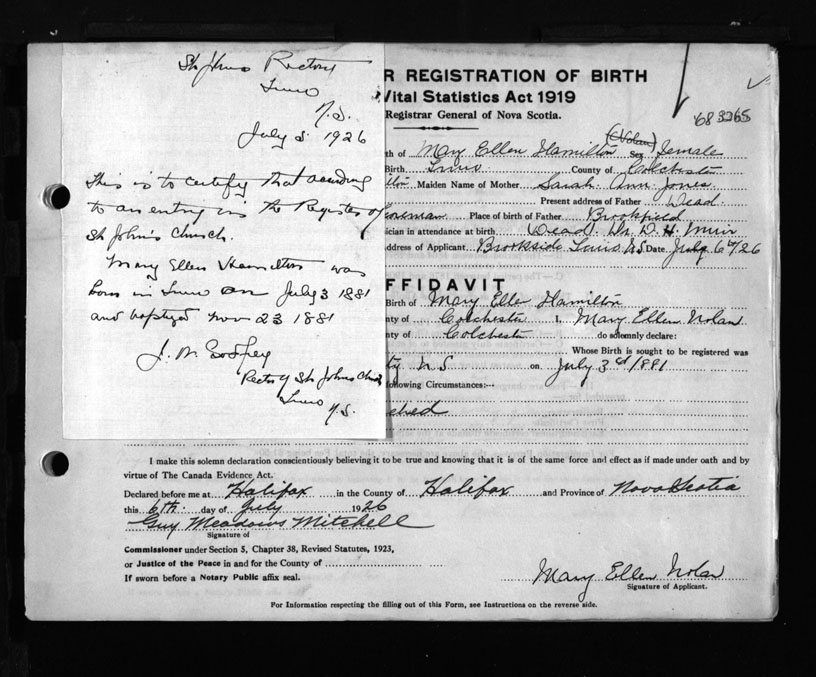 St Johns Rectory
Truro
N.S.
July 5 1926
This is to certify that according
to an entry in the Register of
St John's Church.
Mary Ellen Hamilton was
born in Truro on July 3 1881
and baptized Nov 23 1881
J. W. Godfrey
Rector of St Johns Church
Truro
N.S.
R REGISTRATION OF BIRTH
Vital Statistics Act 1919
Registrar General of Nova Scotia.
68 3265
(Nolan)
th of Mary Ellen Hamilton Sex Female
Birth Truro County of Colchester
ilton Maiden Name of Mother Sarah Ann Jones
Present address of Father Dead
Place of birth of Father Brookfield
ician in attendance at birth Dead. Dr. D. H. Muir
ddress of Applicant Brookside Truro NS Date July 6th/26
FFIDAVIT
Birth of Mary Ellen Hamilton
nty of Colchester I, Mary Ellen Nolan
nty of Colchester do solemnly declare:
Whose Birth is sought to be registered was
ty N S on July 3rd 1881
ollowing Circumstances:--
ched
I make this solemn declaration conscientiously believing it to be true and knowing that it is of the same force and effect as if made under oath and by
virtue of The Canada Evidence Act.
Declared before me at Halifax in the County of Halifax and Province of Nova Scotia
this 6th day of July 1926
Guy Meadows Mitchell
Signature of
Commissioner under Section 5, Chapter 38, Revised Statutes, 1923,
or Justice of the Peace in and for the County of
If sworn before a Notary Public affix seal.
Mary Ellen Nolan
Signature of Applicant.
For Information respecting the filling out of this Form, see Instructions on the reverse side.